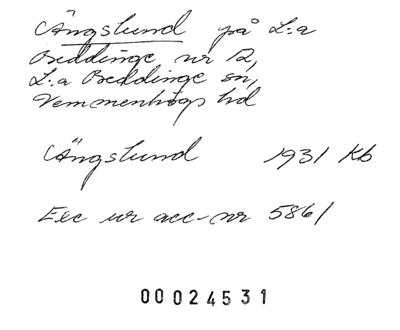 Ängslund på L:a
Beddinge nr 12,
L:a Beddinge sn,
Vemmenhögs hd
Ängslund 1931 Kb
Exc ur acc-nr 5861
00024531